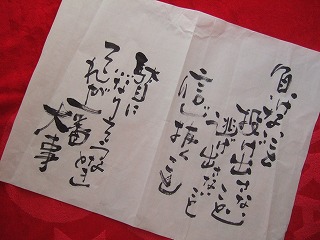 負けないこと
投げ出さないこと
逃げ出さないこと
信じ抜くこと
駄目に
なりそうな時
それが一番
大事